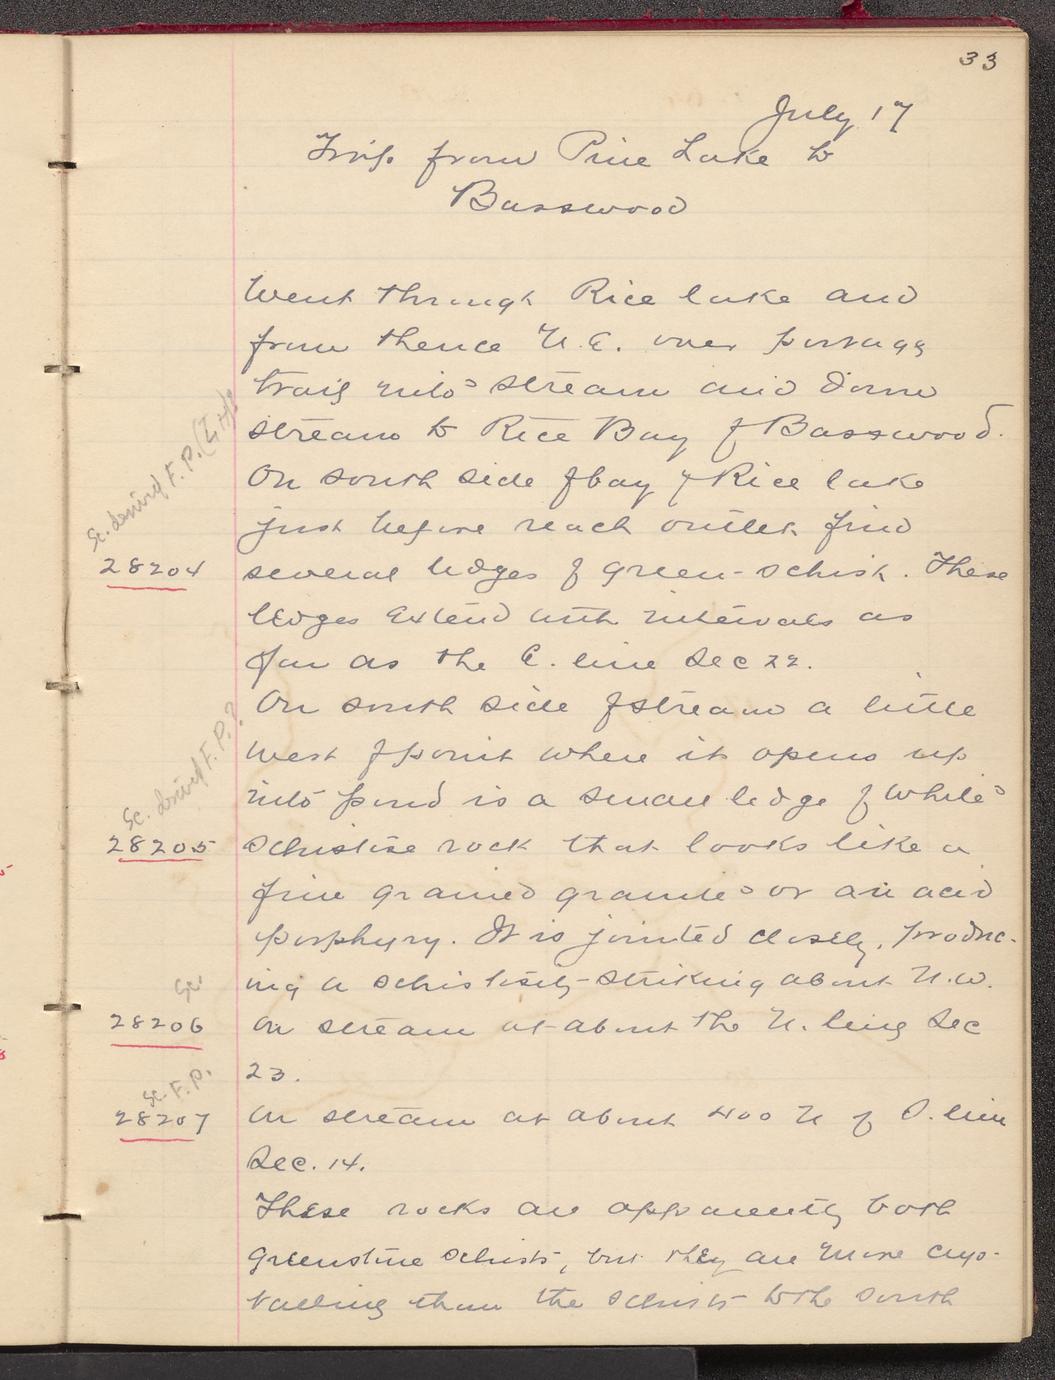 33
July 17
Trip from Pine Lake to
Basswood
Went through Rice lake and
from thence N.E. over portage
trail into stream and down
stream to Rice Bay of Basswood.
On south side of bay of Rice lake
just before reach outlet find
Sc. derived F.P. (
28204
several ledges of green-schist. These
ledges extend with intervals as
far as the E. line Sec 22.
On south side of stream a little
west of point where it opens up
into pond is a small ledge of white
Sc. derived F.P.?
28205
schistose rock that looks like a
fine grained granite or an acid
porphyry. It is jointed closely, produc-
ing a schistosity striking about N.W.
Sc.
28206
On stream at about the N. line Sec
23.
Sc. F.P.
28207
On stream at about 400 N of S. line
Sec. 14.
These rocks are apparently both
greenstone schists, but they are more crys-
talline than the schists to the south